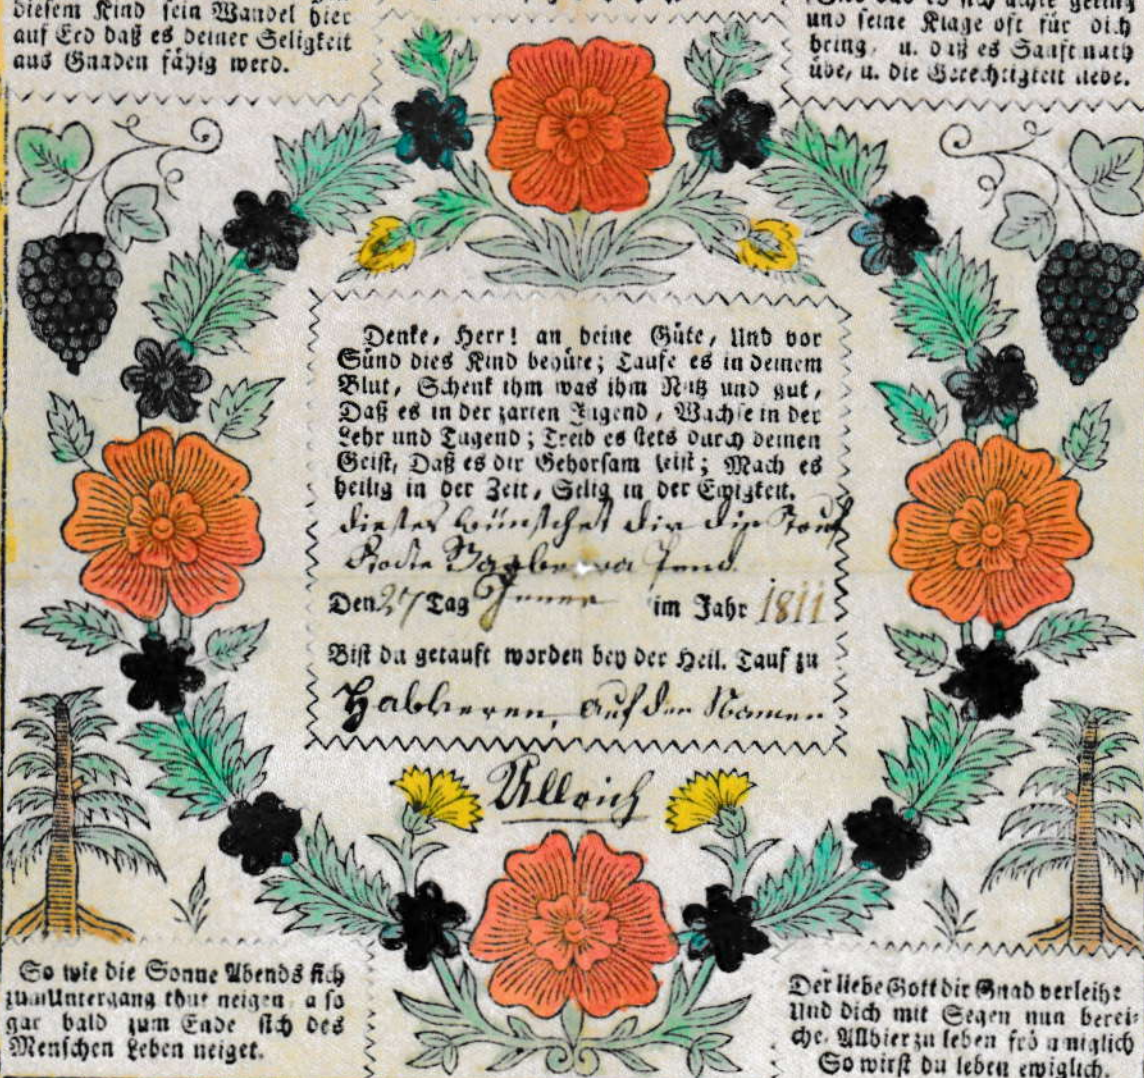 diesem Kind sein Wandel hier
auf Erd daß es deiner Seligkeit
aus Gnaden fähig werd.
und seine Klage oft für dich
bring, u. daß es Sanftmuth
übe, u. die Gerechtigkeit liebe.
Denke, Herr! an deine Güte, Und vor
Sünd dies Kind behüte; Taufe es in deinem
Blut, Schenk ihm was ihm Nutz und gut,
Daß es in der zarten Jugend, Wachse in der
Lehr und Tugend; Treib es stets durch deinen
Geist, Daß es dir Gehorsam leist; Mach es
heilig in der Zeit, Selig in der Ewigkeit.
dieses wünschet dir die Tauf
Barbara
Den 27 Tag Jenner im Jahr 1811
Bist du getauft worden bey der Heil. Tauf zu
Habkeren, auf den Namen
Ullrich
So wie die Sonne Abends sich
zum Untergang thut neigen, also
gar bald zum Ende sich des
Menschen Leben neiget.
Der liebe Gott dir Gnad verleihe
Und dich mit Segen nun berei-
che, Allhier zu leben frömmiglich
So wirst du leben ewiglich.